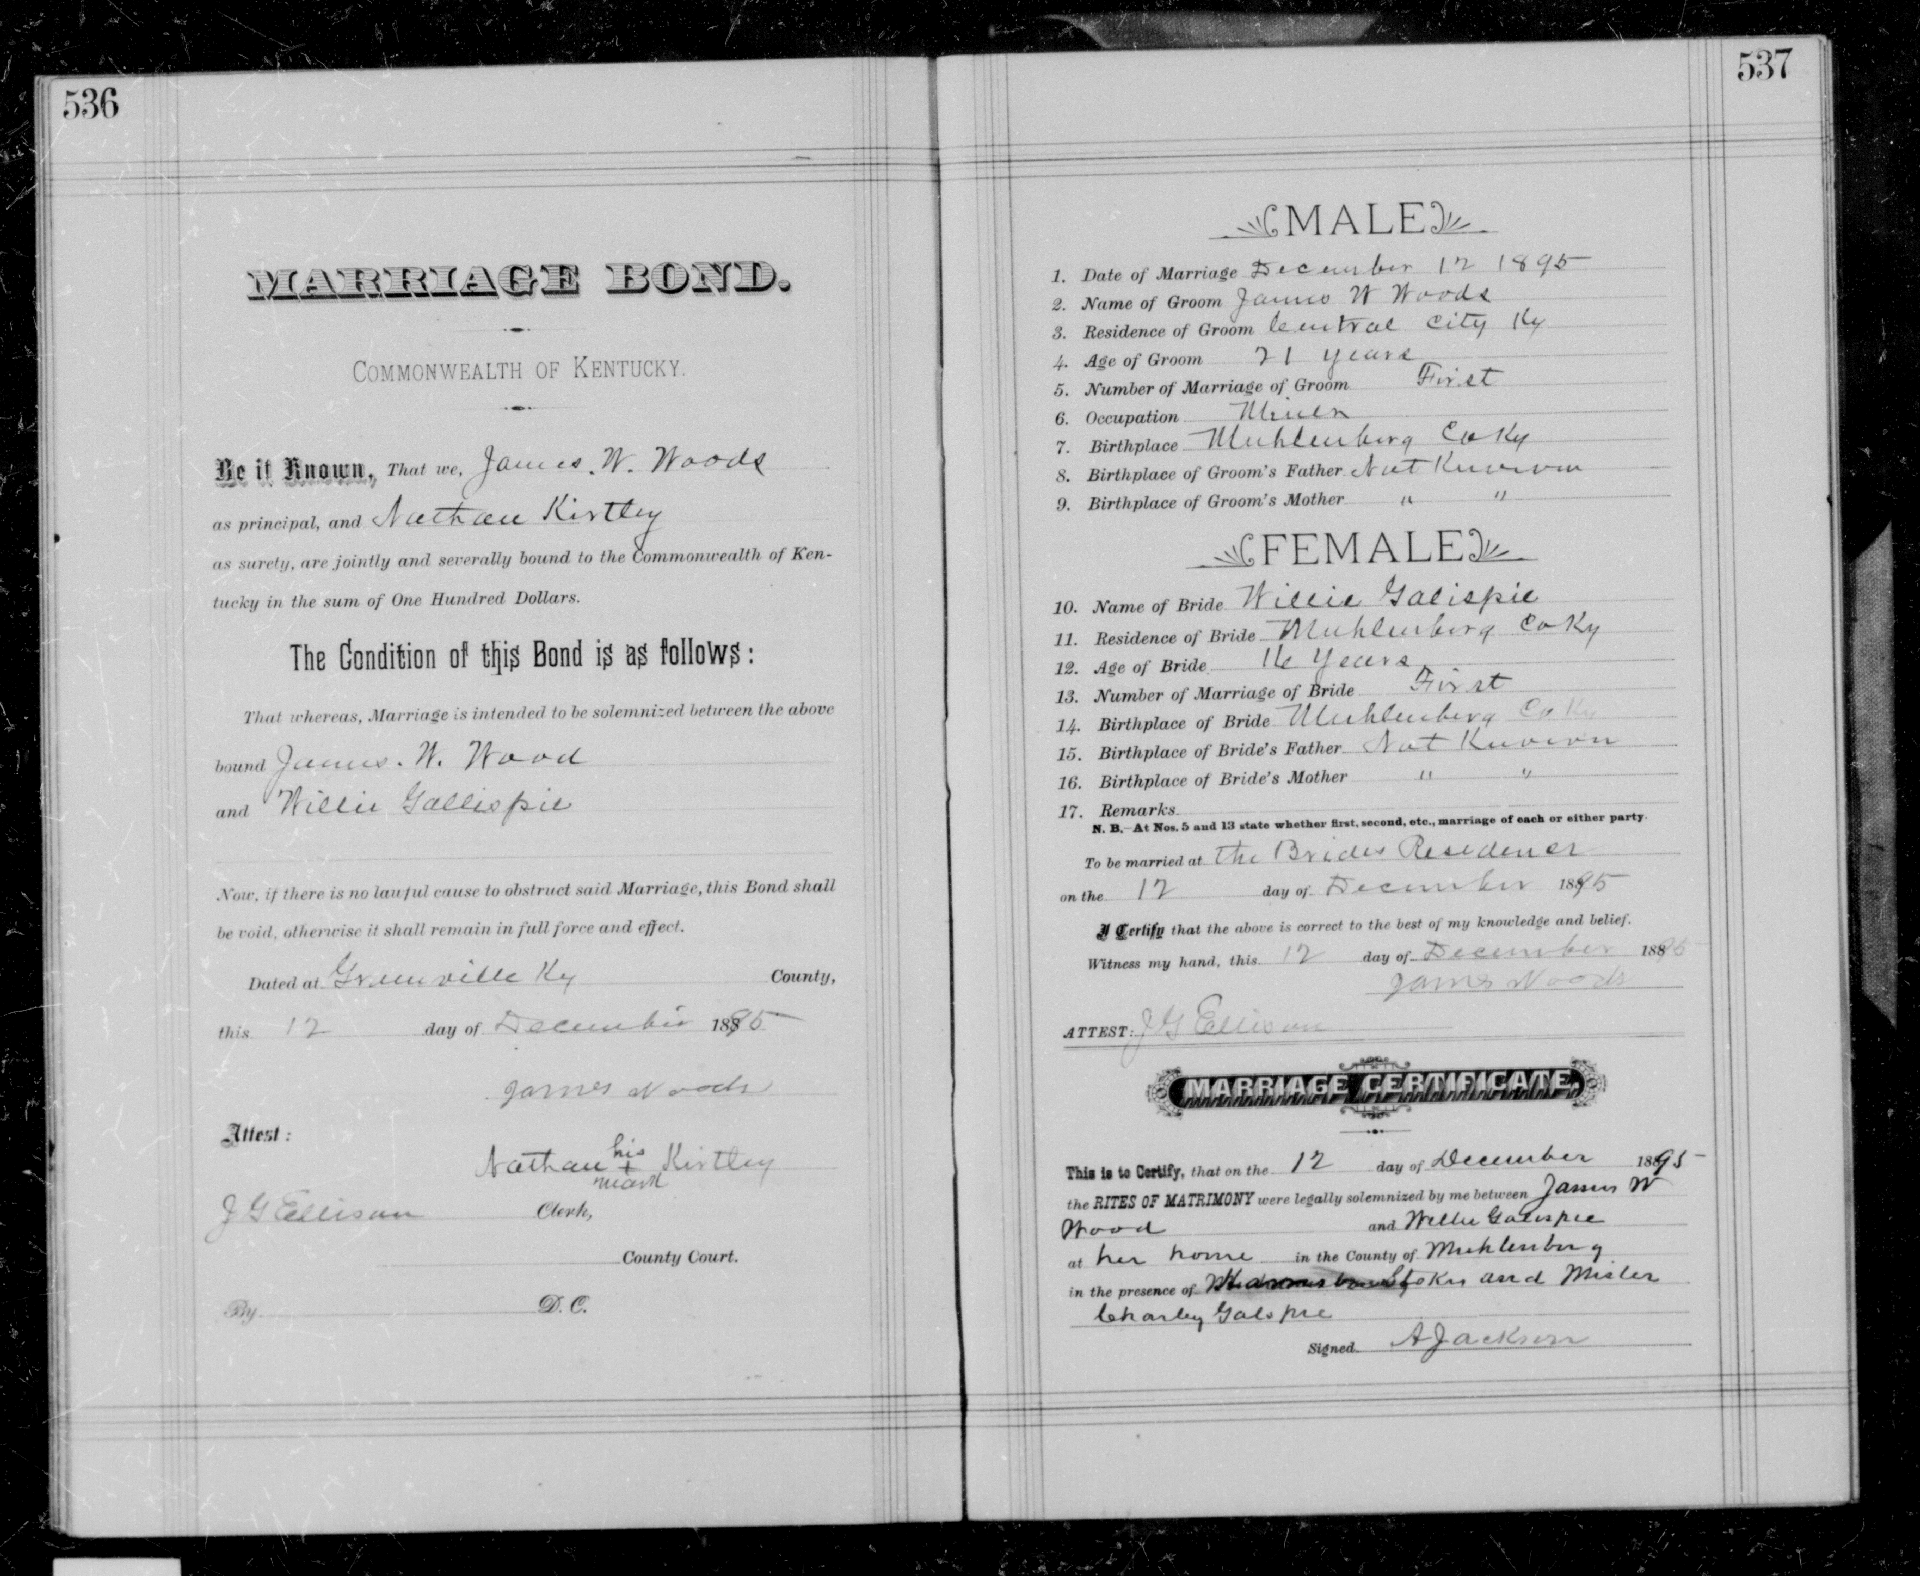 536
MARRIAGE BOND.
COMMONWEALTH OF KENTUCKY.
Be it Known, That we, James. W. Woods
as principal, and Nathan Kirtley
as surety, are jointly and severally bound to the Commonwealth of Ken-
tucky in the sum of One Hundred Dollars.
The Condition of this Bond is as follows:
That whereas, Marriage is intended to be solemnized between the above
bound James. W. Wood
and Willie Gallispie
Now, if there is no lawful cause to obstruct said Marriage, this Bond shall
be void, otherwise it shall remain in full force and effect.
Dated at Greenville Ky County,
this 12 day of December 1895
James Woods
Attest:
Nathan his + mark Kirtley
J G Ellison Clerk,
County Court.
By D. C.
537
MALE
1. Date of Marriage December 12 1895
2. Name of Groom James W Woods
3. Residence of Groom Central City Ky
4. Age of Groom 21 years
5. Number of Marriage of Groom First
6. Occupation Miner
7. Birthplace Muhlenberg Co Ky
8. Birthplace of Groom's Father Not Known
9. Birthplace of Groom's Mother " "
FEMALE
10. Name of Bride Willie Galispie
11. Residence of Bride Muhlenberg Co Ky
12. Age of Bride 16 Years
13. Number of Marriage of Bride First
14. Birthplace of Bride Muhlenberg Co Ky
15. Birthplace of Bride's Father Not Known
16. Birthplace of Bride's Mother " "
17. Remarks
N. B.—At Nos. 5 and 13 state whether first, second, etc., marriage of each or either party.
To be married at the Brides Residence
on the 12 day of December 1895
I Certify that the above is correct to the best of my knowledge and belief.
Witness my hand, this 12 day of December 1895
James Woods
ATTEST: J G Ellison
MARRIAGE CERTIFICATE.
This is to Certify, that on the 12 day of December 1895
the RITES OF MATRIMONY were legally solemnized by me between James W
Wood and Willie Galispie
at her home in the County of Muhlenburg
in the presence of Stokes and Mister
Charley Galspie
Signed A Jackson